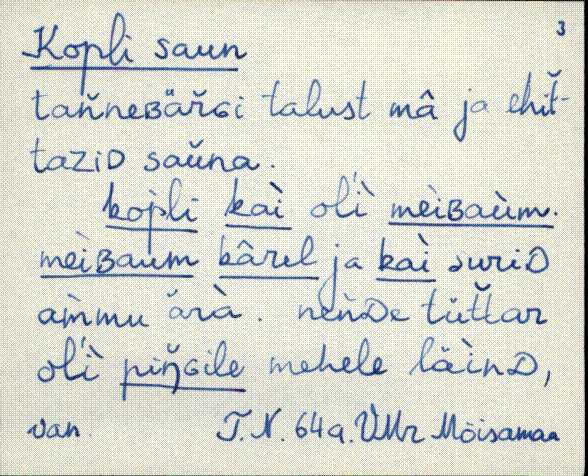 3
Kopli saun
tan̆neʙär̆ɢi talust mâ ja ehit̆-
taziᴅ sau̇na.
kop̀li kaì ol̀i meìʙaùm.
meìʙaum kârel ja kaì suriᴅ
am̀mu ärà. neǹᴅe tüt̆tar
ol̀i piŋ̆ɢile mehele läìnᴅ,
van T.N. 64a. VMr Mõisamaa